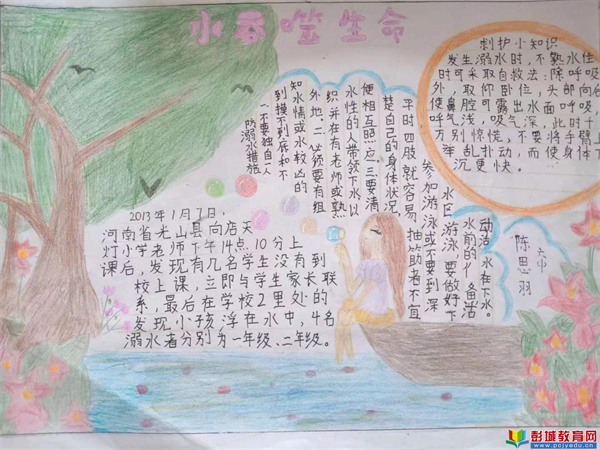 小吞噬生命
救护小知识
发生溺水时,不熟水性
时可采取自救法:除呼吸
外,取仰卧位,头部向后
使鼻腔可露出水面呼吸
呼气浅,吸气深。此时十
万别惊慌,不要将手臂上
举乱扑动,而使身体下
沉更快。
防溺水措施
一、不要独自一人
到摸不到底和不
知水情或水较凶的
外地。二、须要有组
织并在有老师或熟
水性的人带领下水以
便相互照应。三要清
楚自己的身体状况,
平时四肢就容易抽筋者不宜
参加游泳或不要到深
水区游泳。要做好下
水前的准备活
动活,水在下水。
六中
陈思羽
2013年1月7日,
河南省光山县向店天
灯小学老师下午14点10分上
课后,发现有几名学生没有到
校上课,立即与学生家长联
系,最后在学校2里处的
发现小孩浮在水中,4名
溺水者分别为一年级、二年级。
彭城教育网
www.pcjyedu.cn